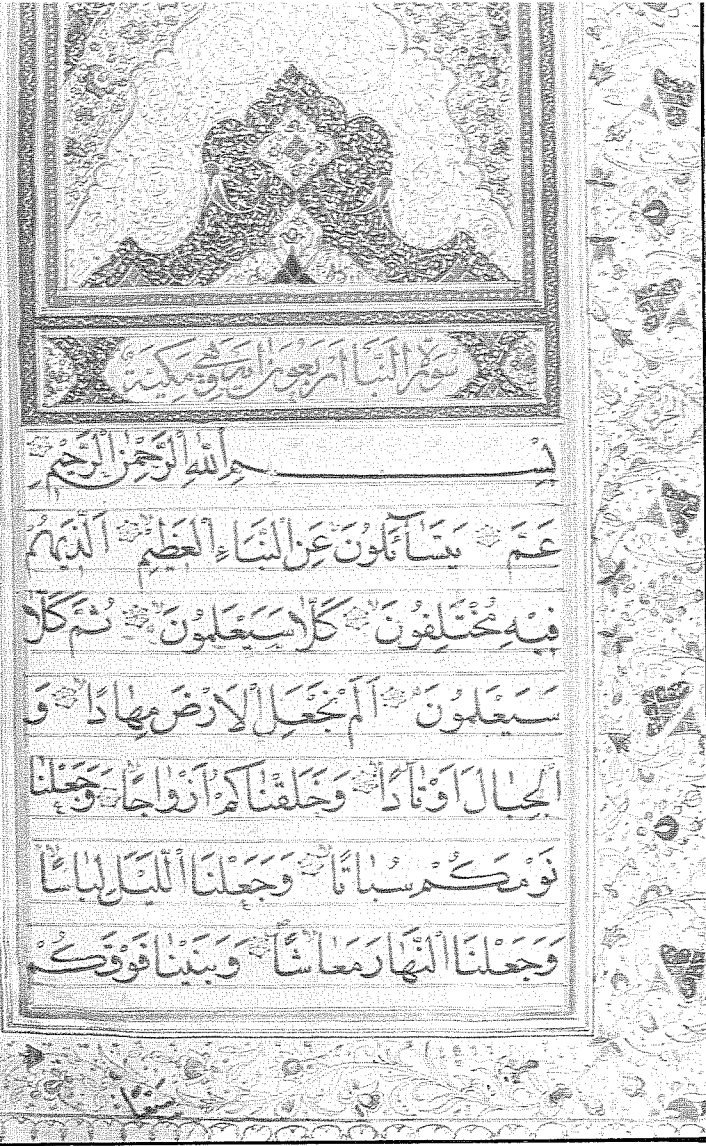 سورة النبأ اربعون آية وهي مكية
بِسْمِ اللّٰهِ الرَّحْمٰنِ الرَّحٖيمِ
عَمَّ يَتَسَٓاءَلُونَ عَنِ النَّبَاءِ الْعَظٖيمِ اَلَّذٖى هُمْ
فٖيهِ مُخْتَلِفُونَ كَلَّا سَيَعْلَمُونَ ثُمَّ كَلَّا
سَيَعْلَمُونَ اَلَمْ نَجْعَلِ الْاَرْضَ مِهَادًا وَ
الْجِبَالَ اَوْتَادًا وَخَلَقْنَاكُمْ اَزْوَاجًا وَجَعَلْنَا
نَوْمَكُمْ سُبَاتًا وَجَعَلْنَا الَّيْلَ لِبَاسًا
وَجَعَلْنَا النَّهَارَ مَعَاشًا وَبَنَيْنَا فَوْقَكُمْ
سبعا